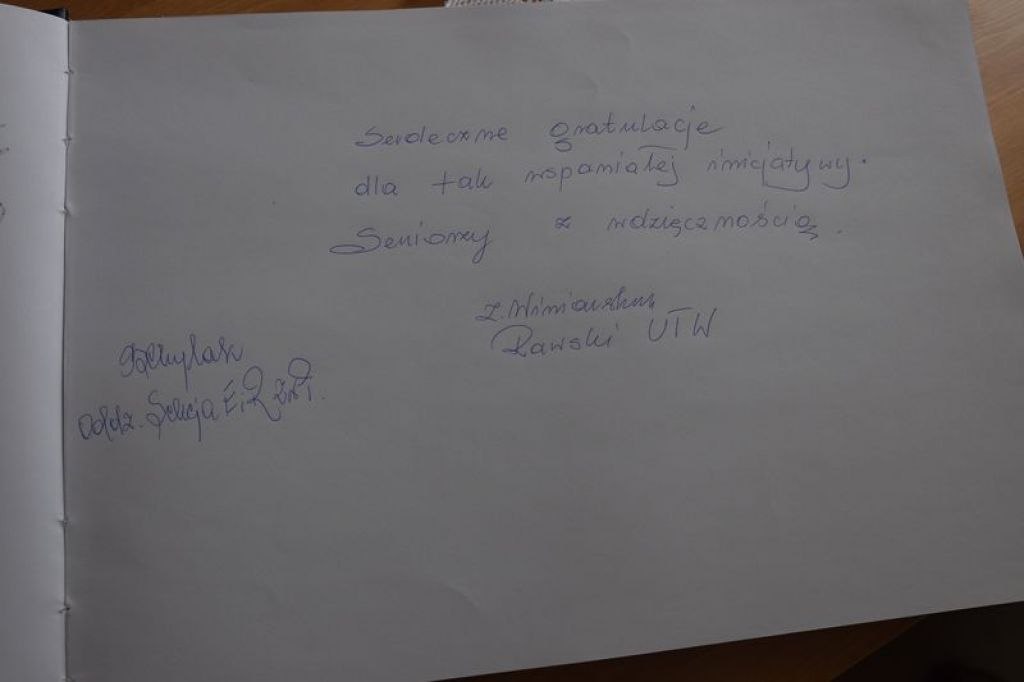 Serdeczne gratulacje
dla tak wspaniałej inicjatywy.
Seniorzy z wdzięcznością.
Z. Winiarska
Rawski UTW
oddz. Sekcja EiR ZNP.